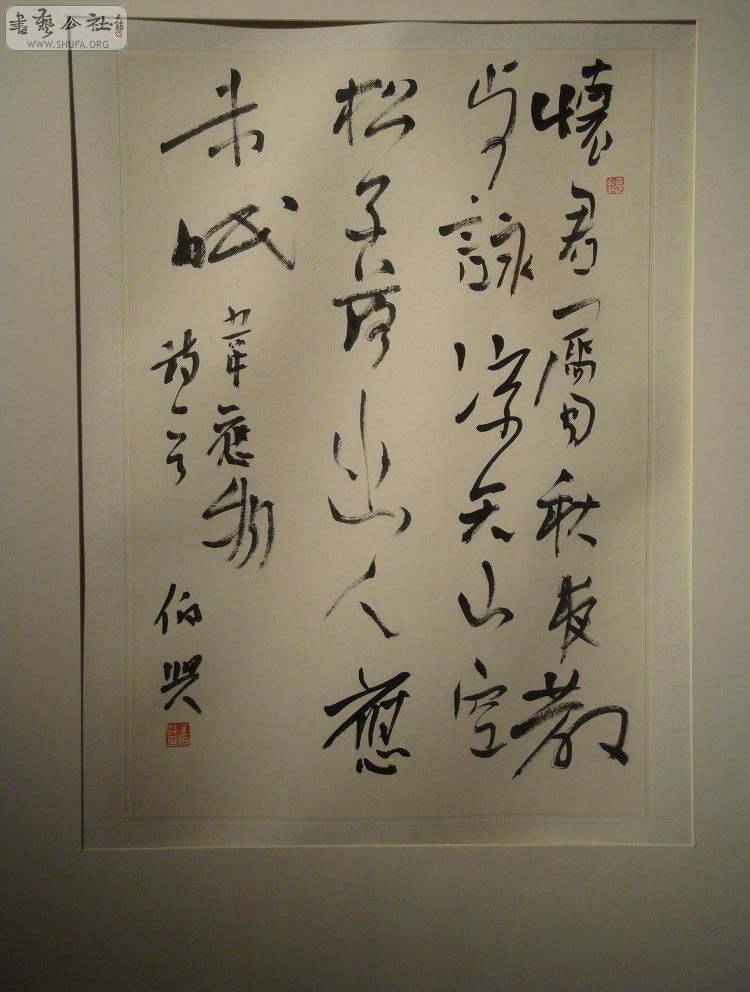 書藝公社
WWW.SHUFA.ORG
懷君屬秋夜散
步詠凉天山空
松子落幽人應
未眠
韋應物
詩一首 伯興